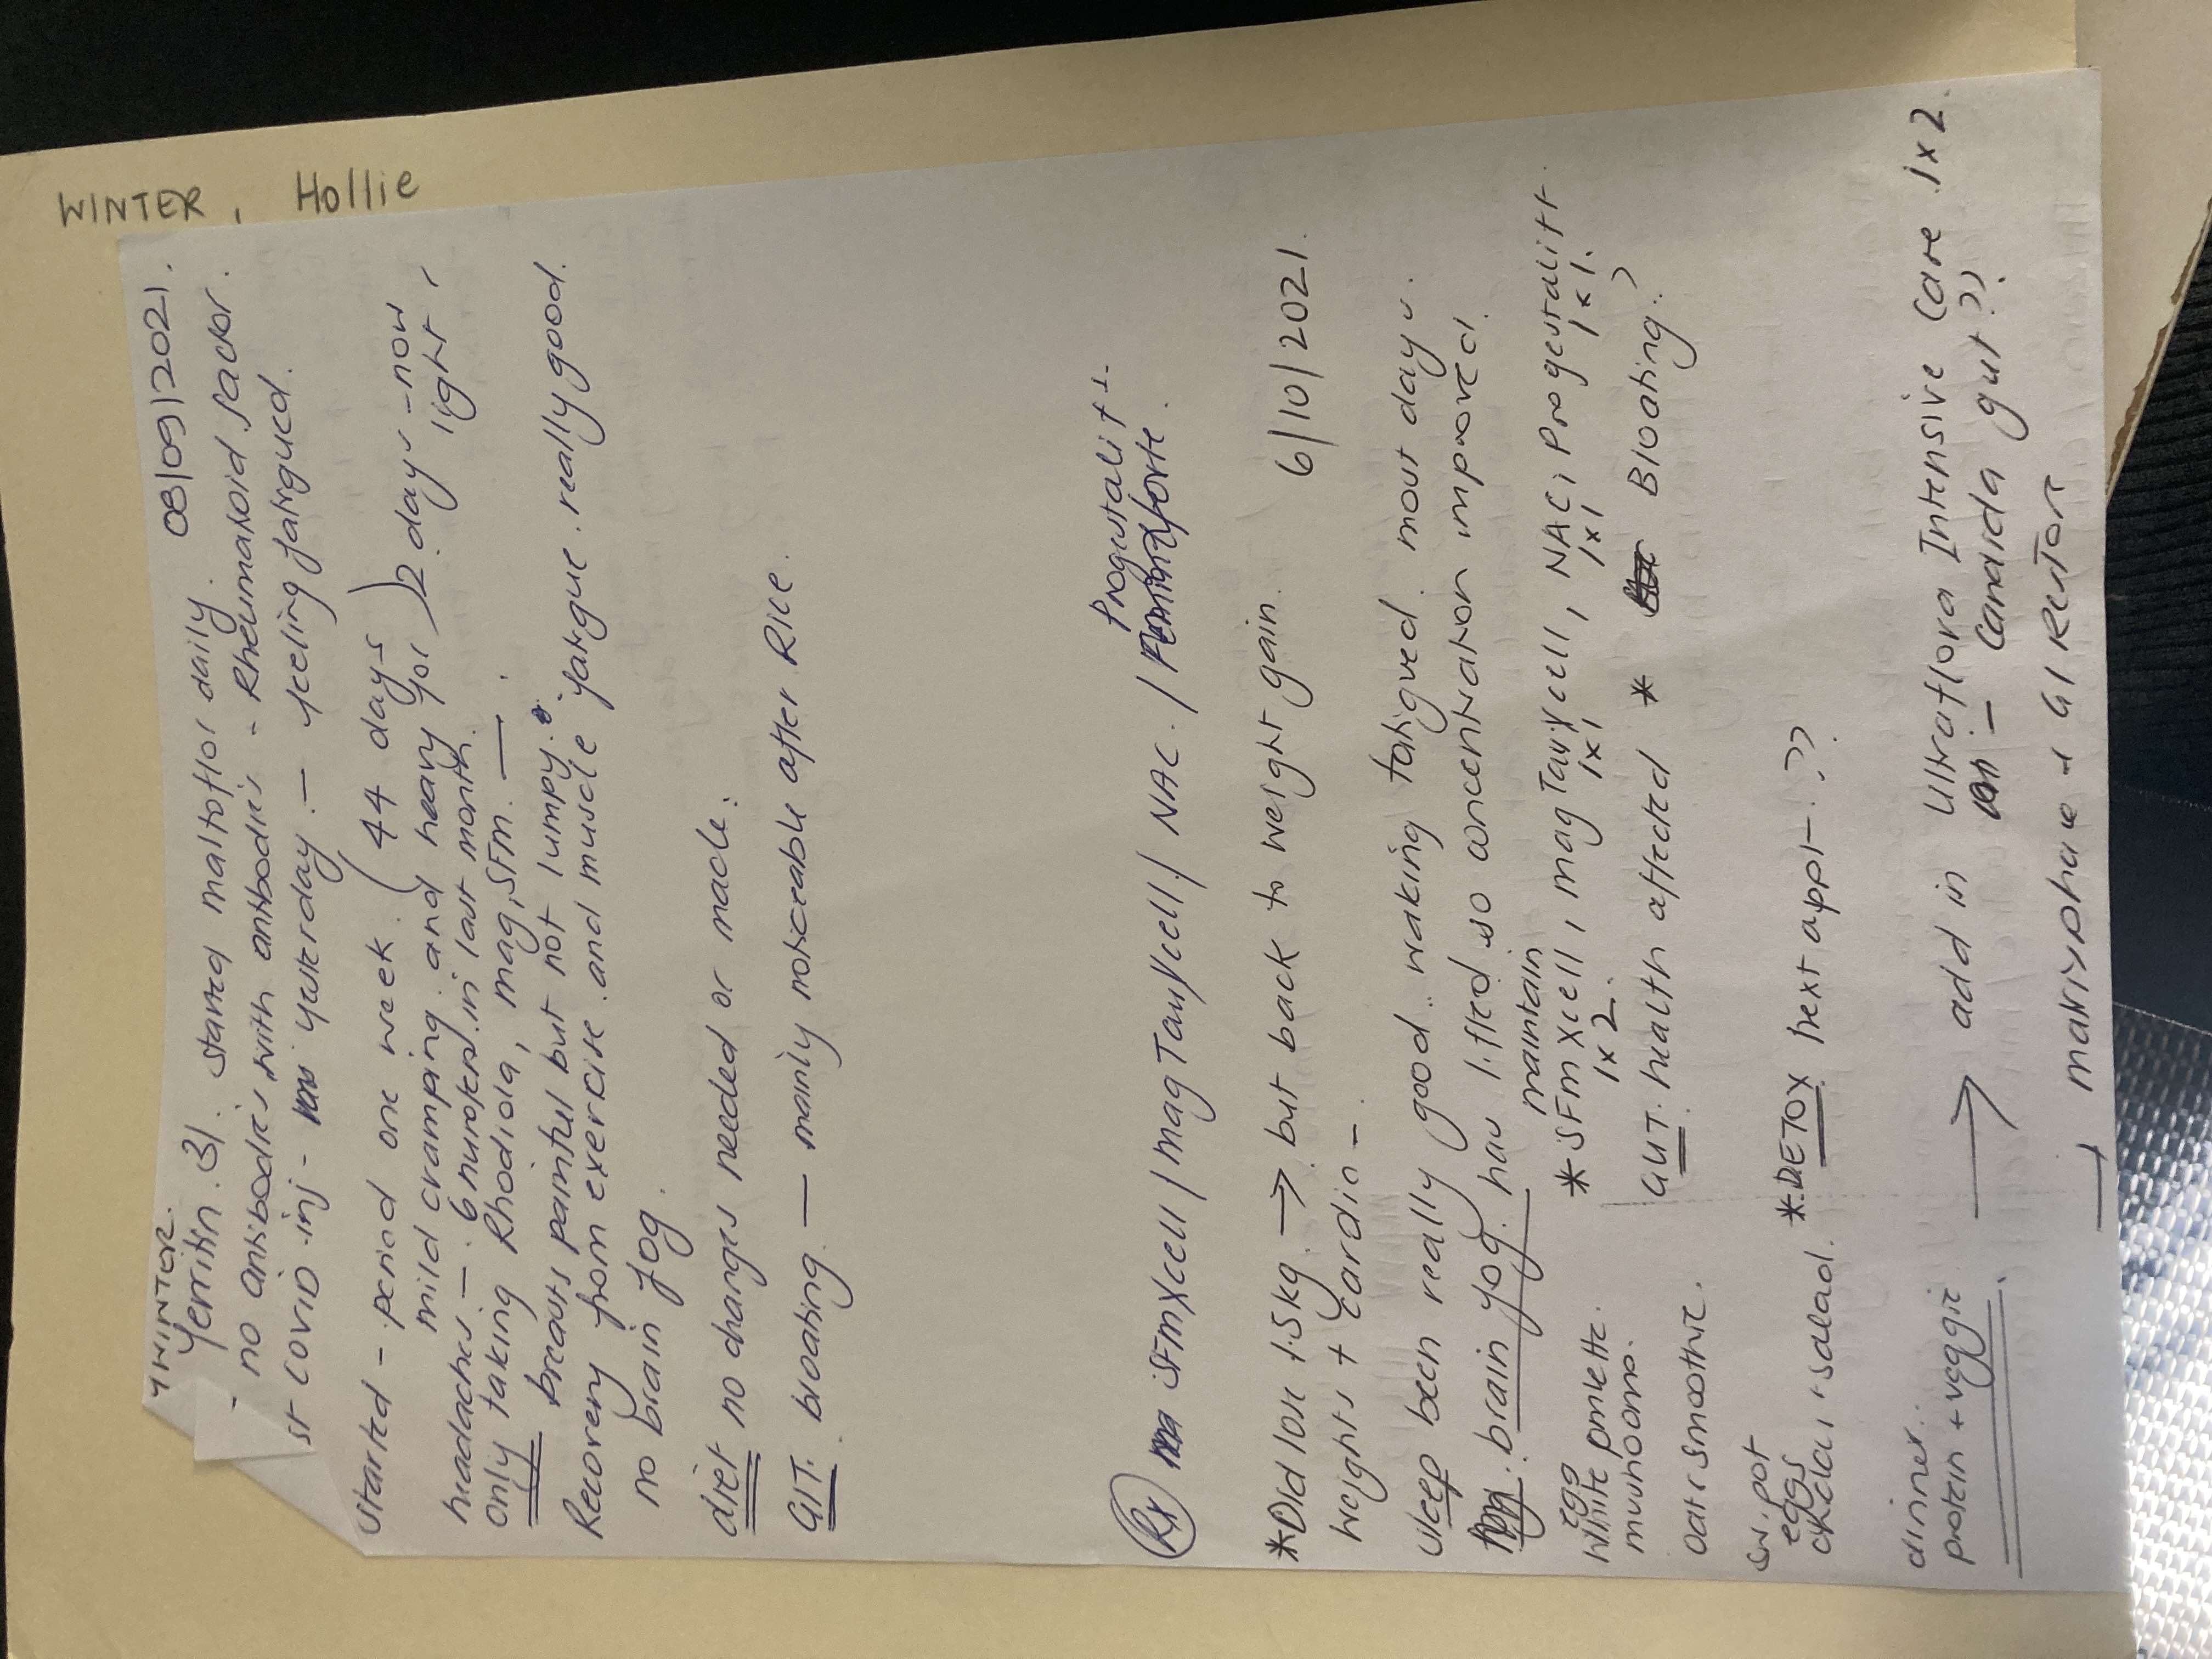 WINTER, Hollie
WINTER.
08/09/2021.
ferritin 31. started maltofior daily.
- no antibodies with antibodies - Rheumatoid factor.
st COVID inj - yesterday. — feeling fatigued.
started - period one week. (44 days)
mild cramping and heavy for 2 days - now light,
headaches — 6 nurofen in last month.
only taking Rhodiola, mag, SFM. —
breasts painful but not lumpy.
Recovery from exercise and muscle fatigue really good.
no brain fog.
diet no changes needed or made.
GIT. bloating. — mainly noticeable after Rice.
Progutalit
Rx SFMXcell / magTauXcell / NAC. / Femmeforte.
6/10/2021.
*Did lose 1.5kg. → but back to weight gain.
weights + cardio -
sleep been really good. waking fatigued most days.
brain fog. has lifted so concentration improved.
maintain
* SFMXcell, magTauXcell, NAC, Progestalift.
1x2. 1x1 1x1 1x1.
egg
white omlette.
mushooms.
GUT. health affected * Bloating.?
oats smoothie.
sw. pot
eggs
chicken, salad.
*DETOX next appt-??
dinner..
protein + veggie
→ add in Ultraflora Intensive Care 1x2.
- Candida gut??
→ matrixphase + GI Restore